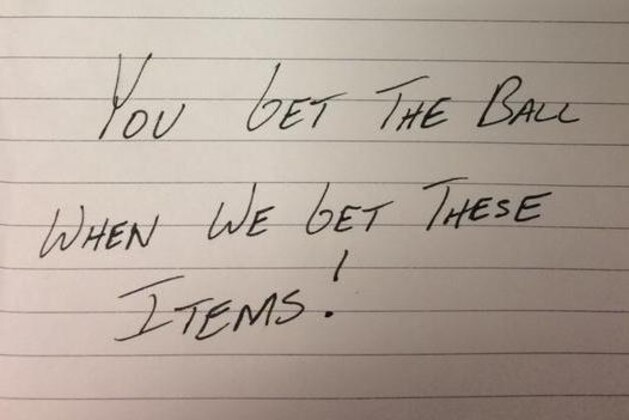 You GET THE BALL
WHEN WE GET THESE
ITEMS!